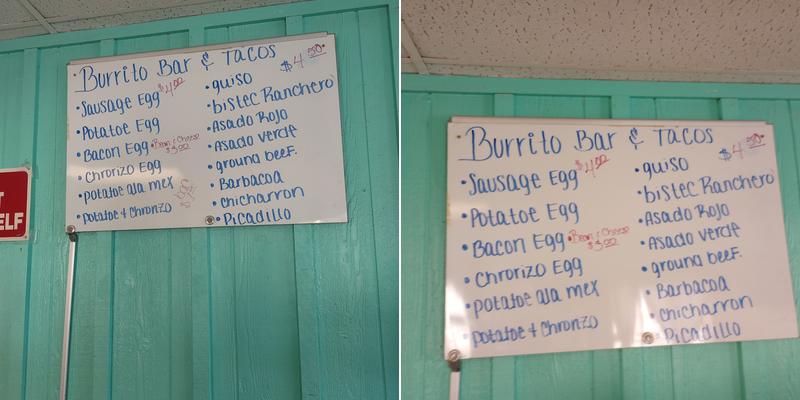 Burrito Bar & Tacos
• Sausage Egg $4.00
• Potatoe Egg
• Bacon Egg • Bean & Cheese $3.00
• Chrorizo Egg
• potatoe ala mex
• potatoe + Chronzo
$4.50
• guiso
• bistec Ranchero
• Asado Rojo
• Asado verde
• ground beef.
• Barbacoa
• chicharron
• Picadillo
ELF
Burrito Bar & Tacos
• Sausage Egg $4.00
• Potatoe Egg
• Bacon Egg • Bean & Cheese $3.00
• Chrorizo Egg
• potatoe ala mex
• potatoe + Chronzo
$4.50
• guiso
• bistec Ranchero
• Asado Rojo
• Asado verde
• ground beef.
• Barbacoa
• chicharron
• Picadillo